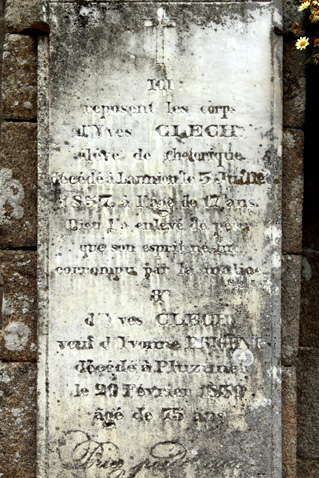 ICI
reposent les corps
d'Yves CLECH
élève de rhétorique
décédé à Lannion le 3 Juillet
1857 à l'âge de 17 ans.
Dieu l'a enlevé de peur
que son esprit ne fut
corrompu par la malice
&
d'Yves CLECH
veuf d'Yvonne PRIGENT
décédé à Pluzunet
le 20 Février 1859
âgé de 75 ans
Priez pour eux